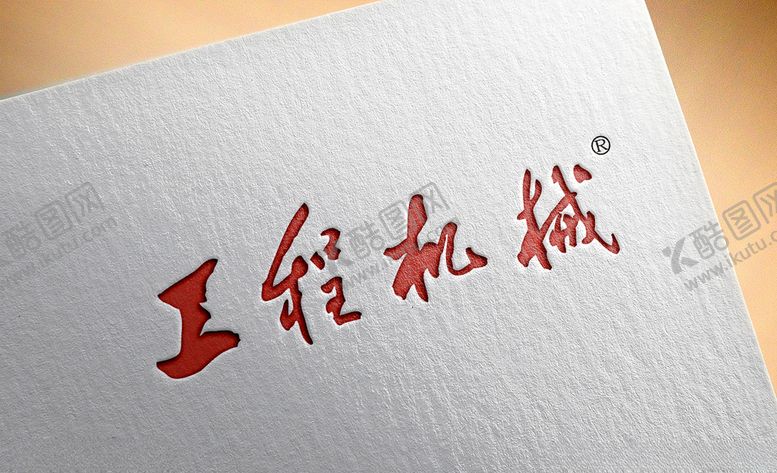 工程机械®
酷图网
www.ikutu.com
酷图网
酷图网
www.ikutu.com